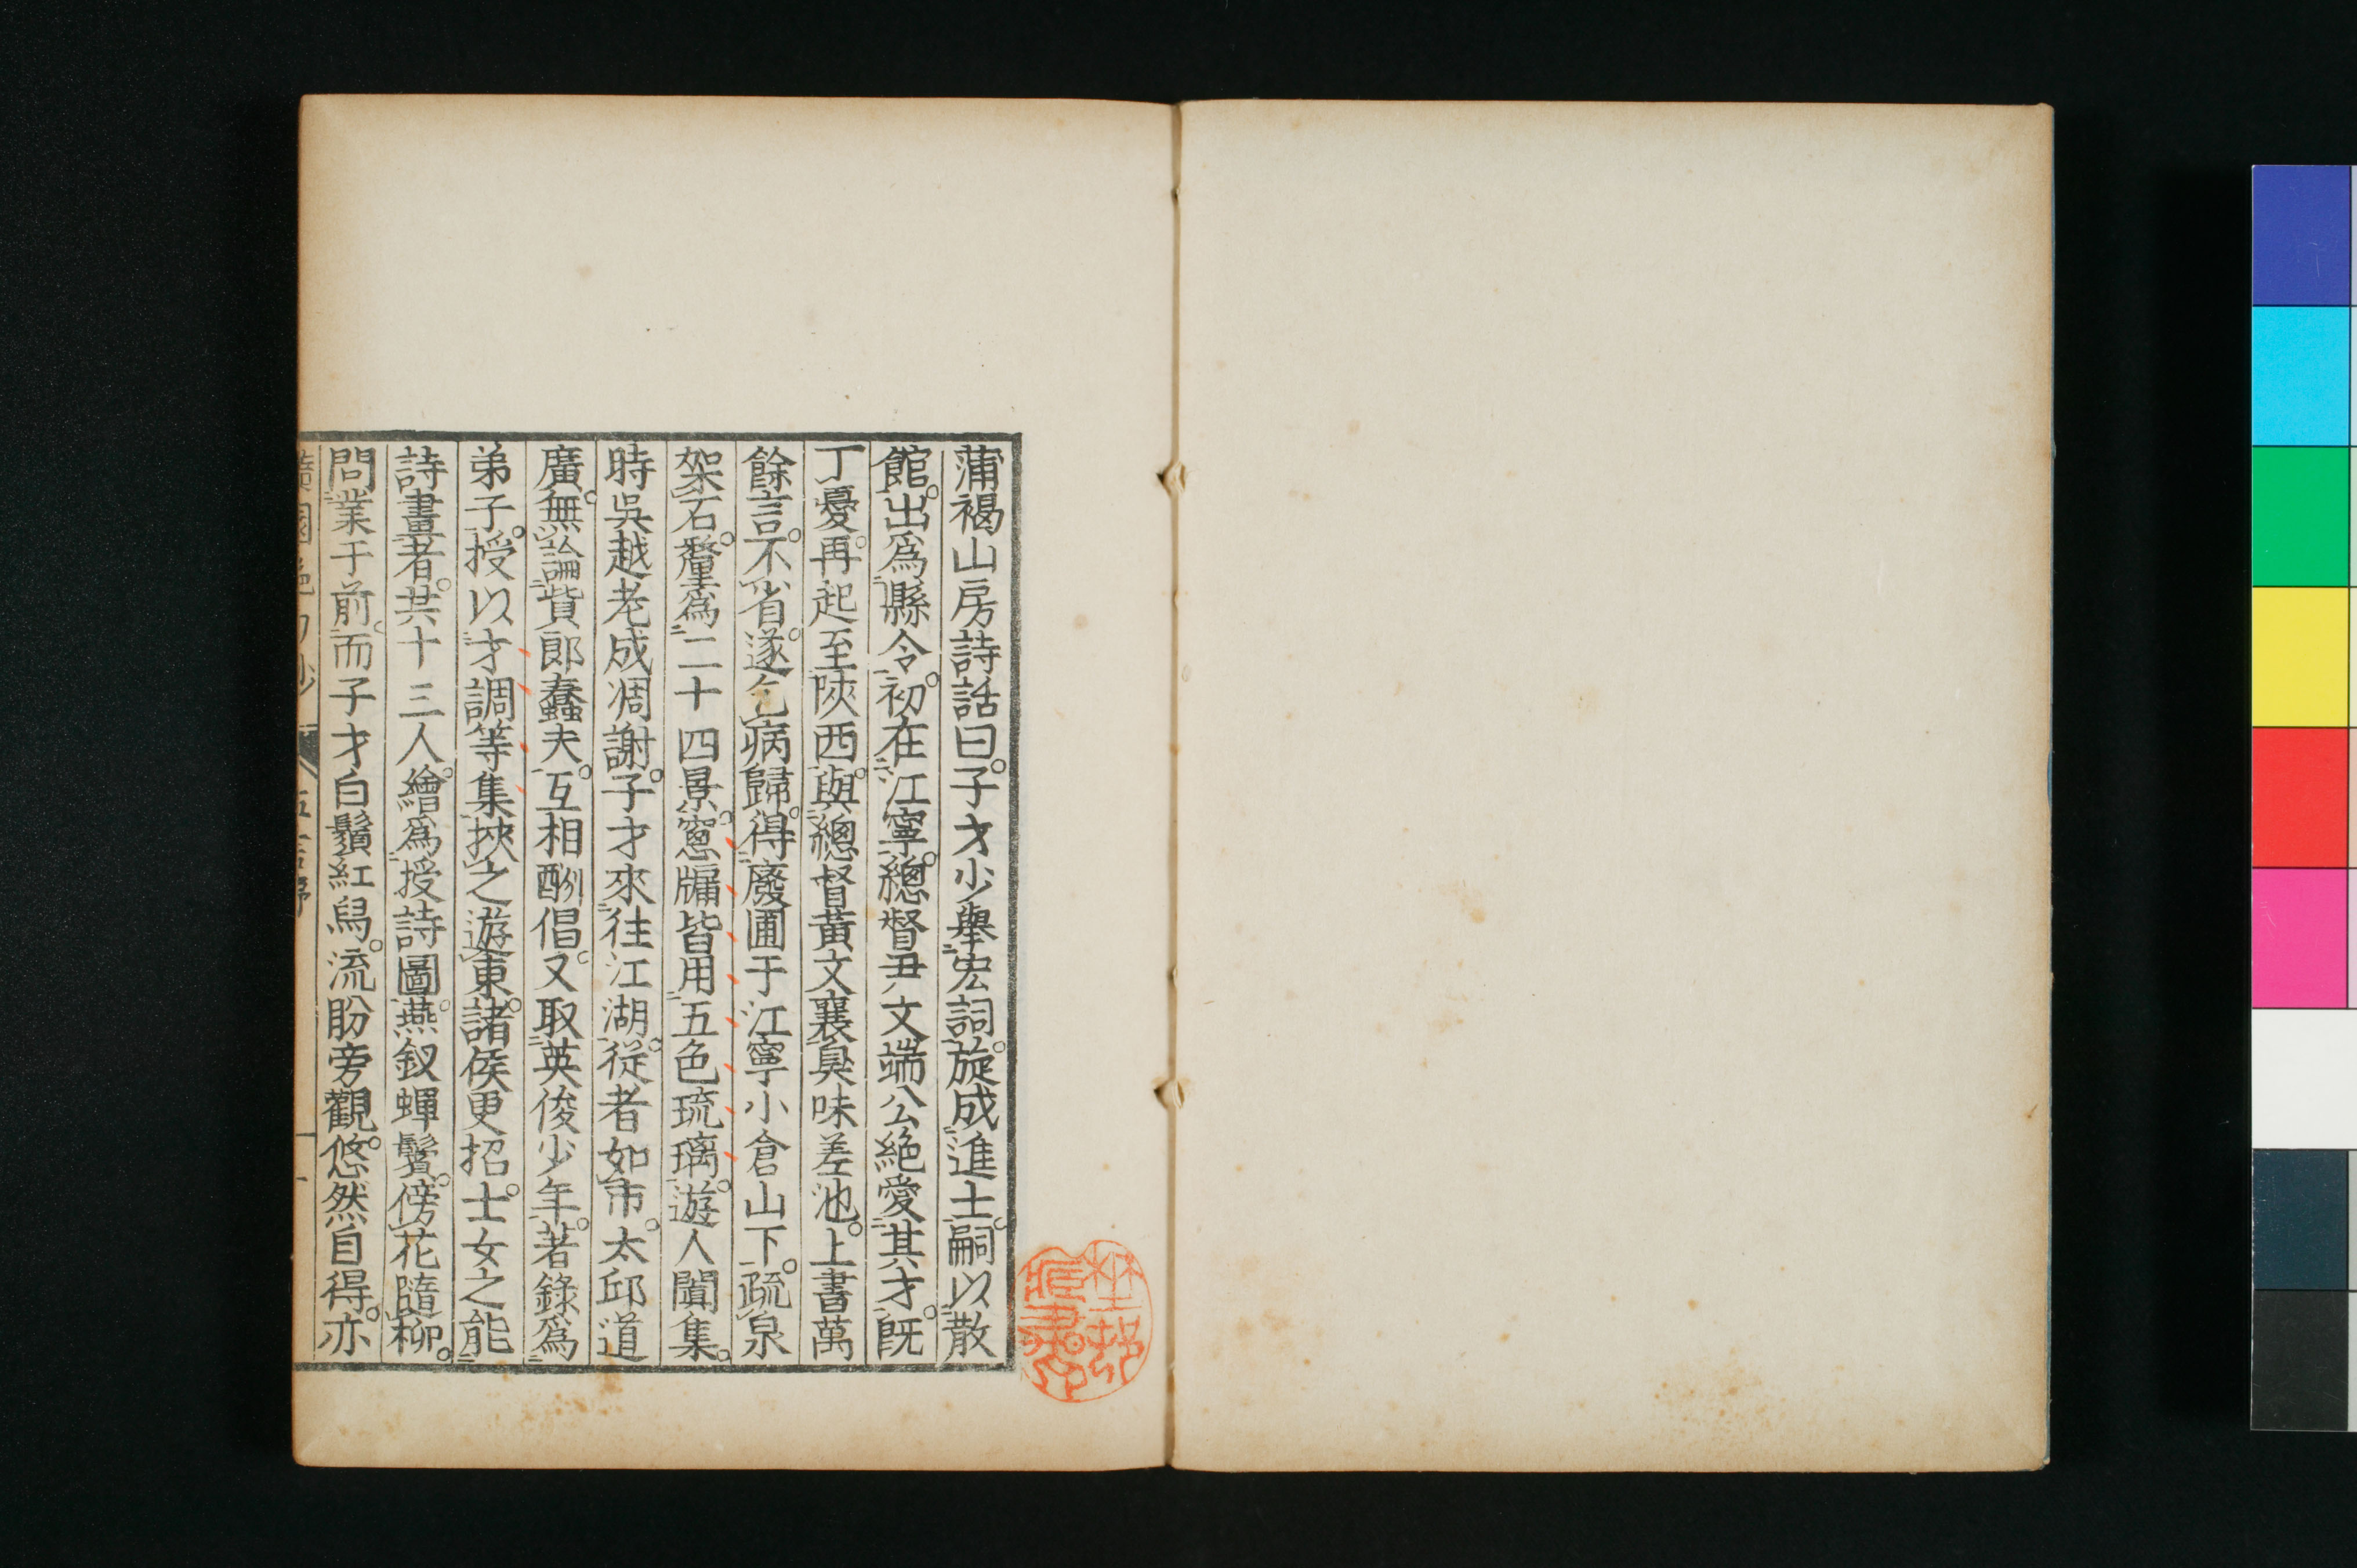 蒲褐山房詩話曰。子才少舉宏詞。旋成進士。嗣以散
館。出爲縣令。初在江寧。總督尹文端公絶愛其才。既
丁憂。再起至陝西。與總督黃文襄臭味差池。上書萬
餘言。不省。遂乞病歸。得廢圃于江寧小倉山下。疏泉
架石。釐爲二十四景。窻牖皆用五色琉璃。遊人闐集。
時吳越老成凋謝。子才來往江湖。從者如市。太邱道
廣。無論貲郎蠢夫。互相酬倡。又取英俊少年。著錄爲
弟子。授以才調等集。挾之遊東。諸侯更招。士女之能
詩畫者。共十三人。繪爲授詩圖。燕釵蟬鬢。傍花隨柳。
問業于前。而子才白鬚紅舄。流盼旁觀。悠然自得。亦